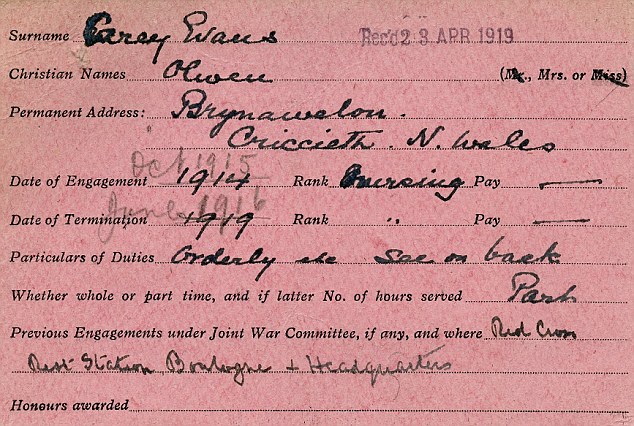 Surname Carey Evans Rec'd 23 APR 1919
Christian Names Olwen (Mr., Mrs. or Miss)
Permanent Address: Brynawelon.
Criccieth. N. Wales
Oct 1915
Date of Engagement 1914 Rank Nursing Pay —
June 1916
Date of Termination 1919 Rank " Pay —
Particulars of Duties Orderly etc see on back
Whether whole or part time, and if latter No. of hours served Part
Previous Engagements under Joint War Committee, if any, and where Red Cross
Rest Station, Boulogne + Headquarters
Honours awarded